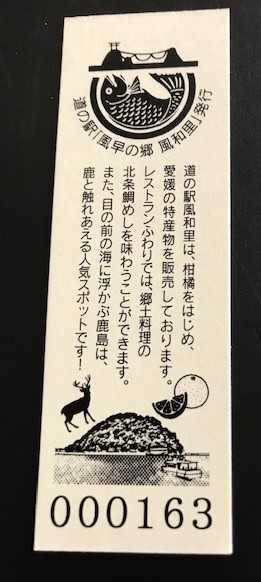 道の駅「風早の郷 風和里」発行
道の駅風和里は、柑橘をはじめ、
愛媛の特産物を販売しております。
レストランふわりでは、郷土料理の
北条鯛めしを味わうことができます。
また、目の前の海に浮かぶ鹿島は、
鹿と触れあえる人気スポットです!
000163